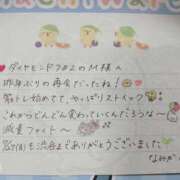 ダイヤモンド702のM様へ
昨年ぶりの再会だったね!
筋トレ始めてて、やっぱりストイック
これからどんどん変わっていくんだろうな〜
減量ファイト〜
も渋谷までありがとうございました